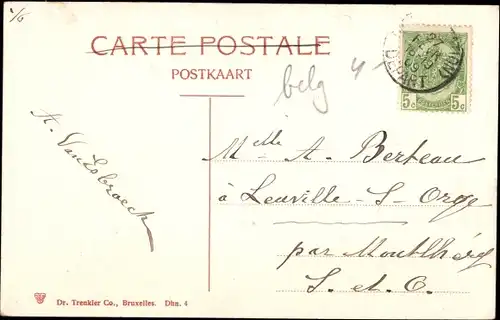 1/6
CARTE POSTALE
POSTKAART
belg
4-
DEPART
5c 5c
A. Vanlobroeck
Melle A. Berteau
à Leuville-S-Orge
par Montlhéry
S. et O.
Dr. Trenkler Co., Bruxelles. Dhn. 4